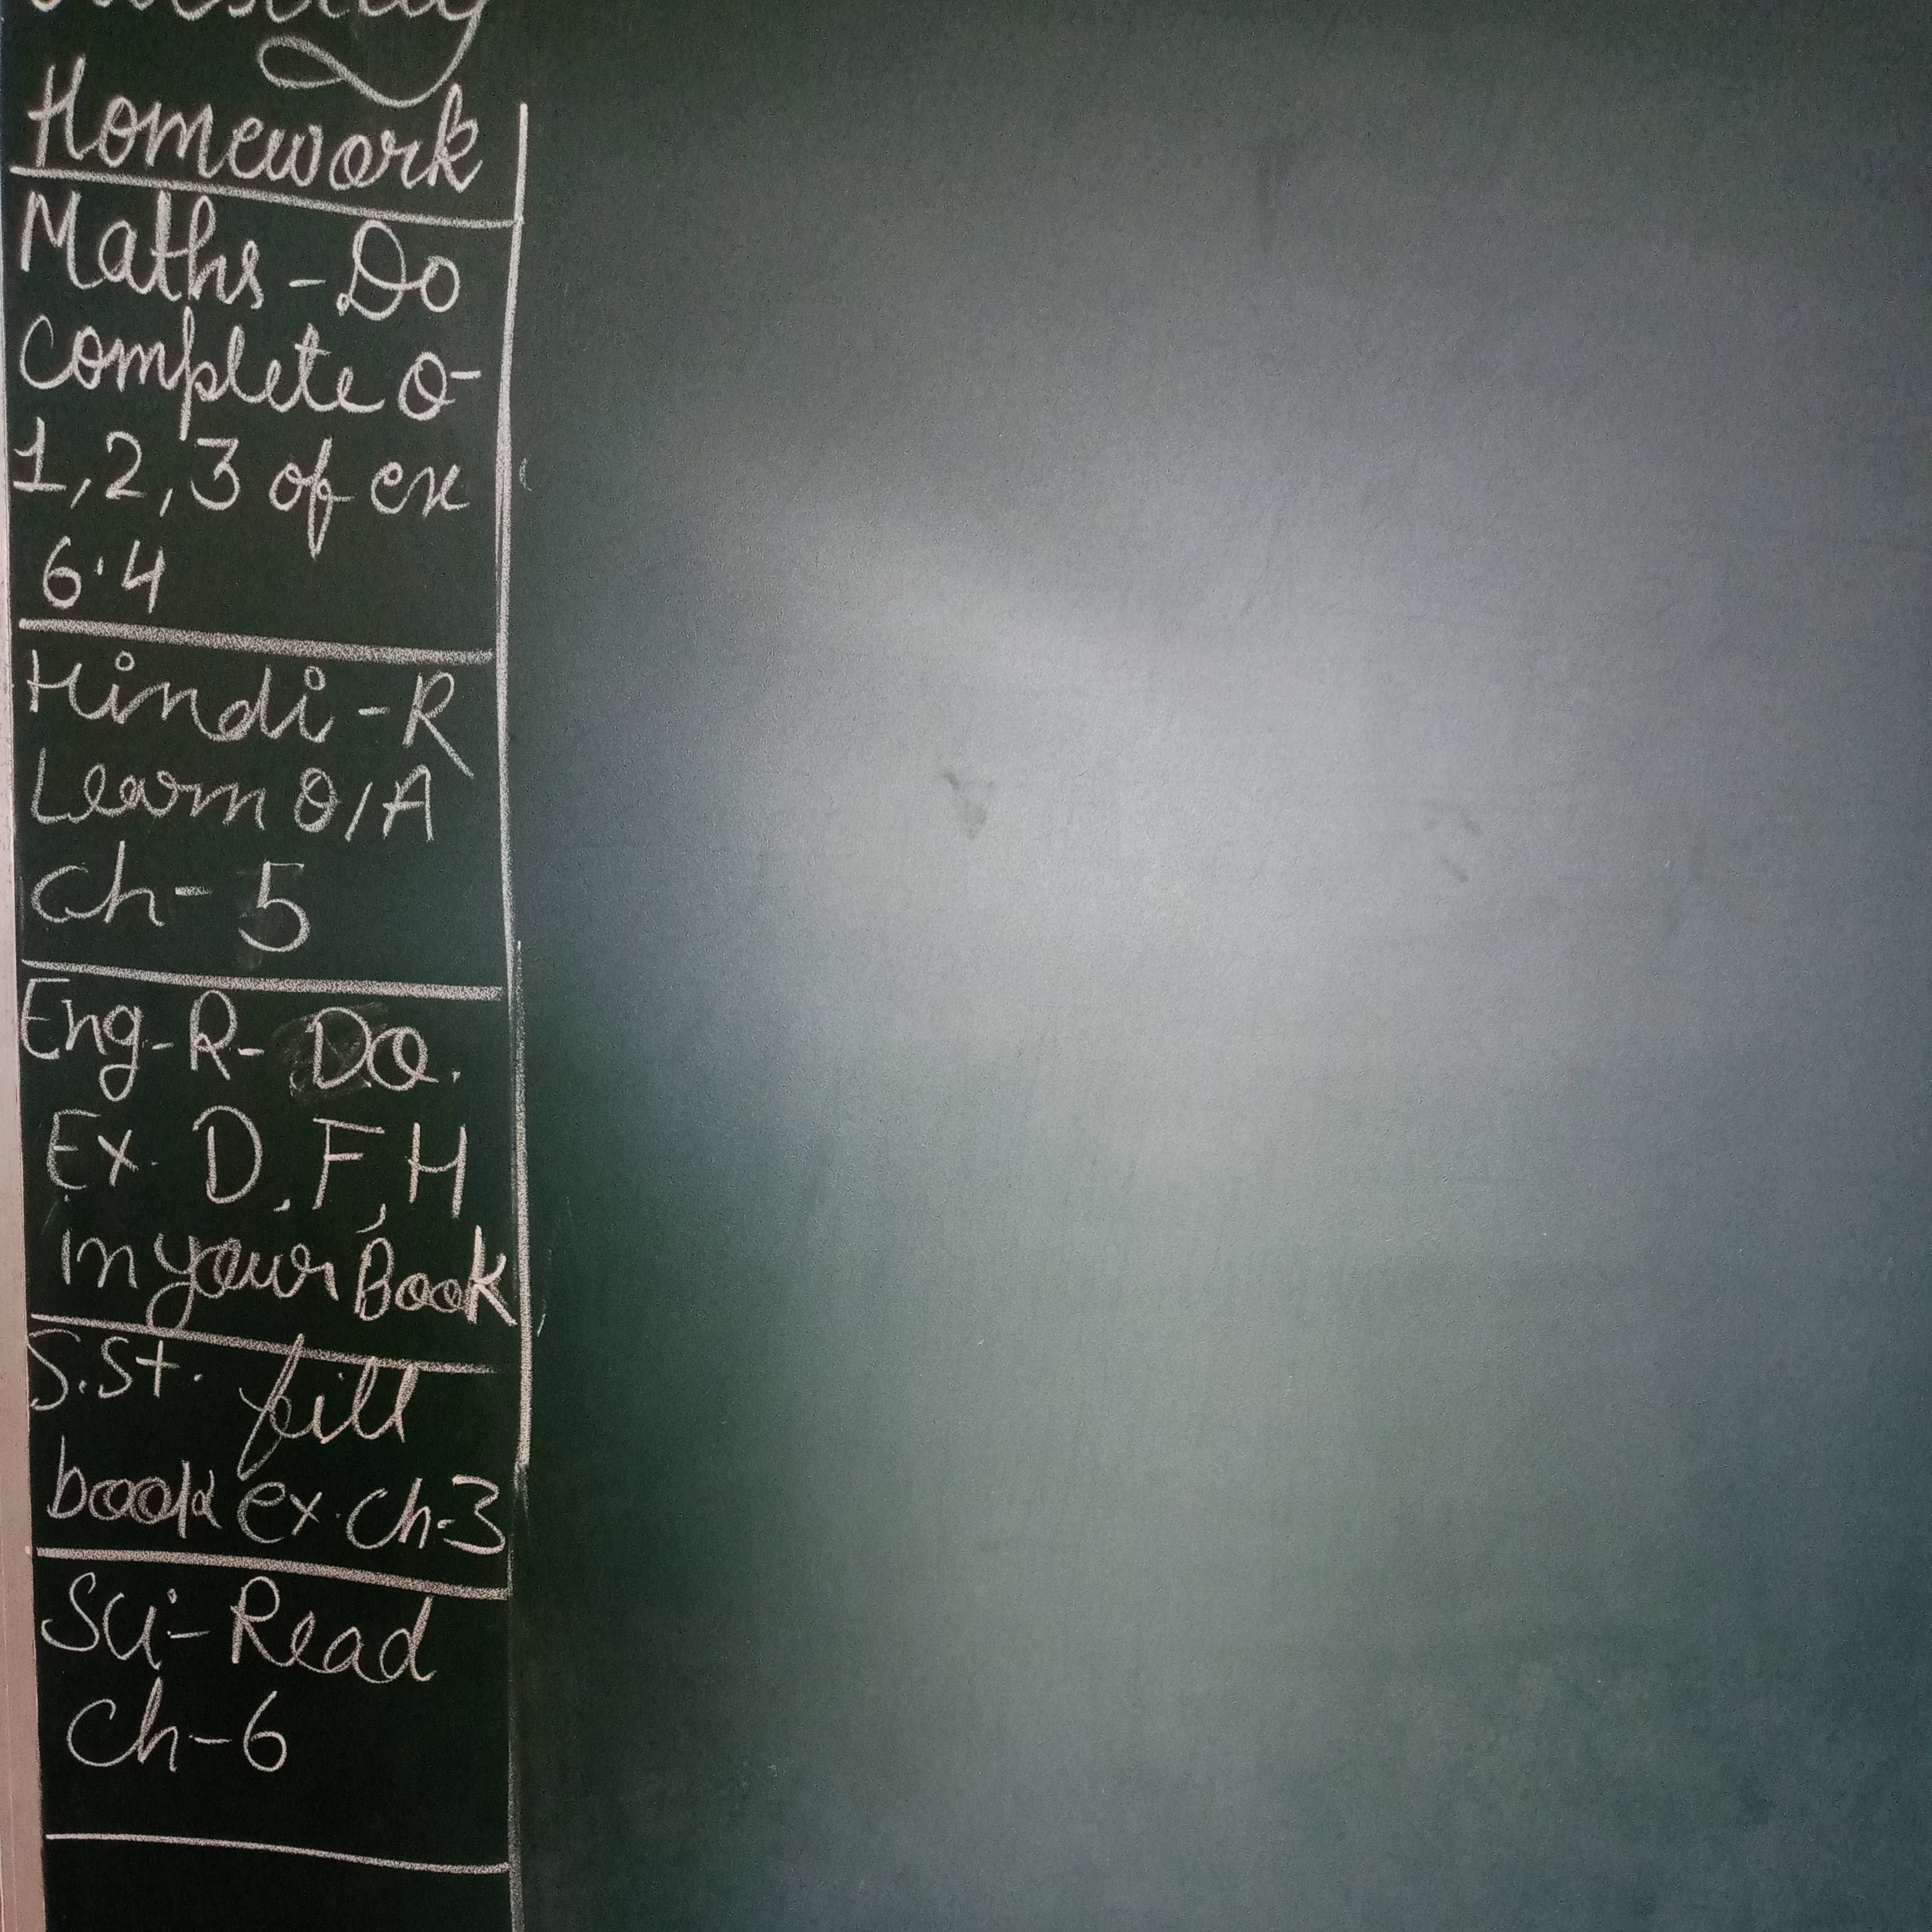 Homework
Maths - Do
complete Q-
1, 2, 3 of ex
6.4
Hindi - R
Learn Q/A
Ch- 5
Eng- R- Do.
Ex. D, F, H
in your Book
S.St. fill
book ex. Ch-3
Sci- Read
Ch-6